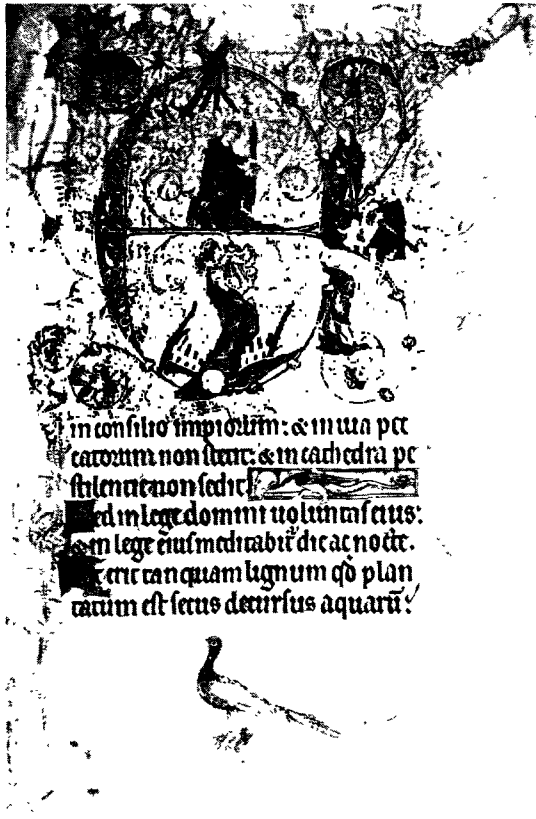 in consilio impiorum: & in uia pec
catorum non stetit: & in cathedra pe
stilentie non sedit.
Sed in lege domini uoluntas eius:
& in lege eius meditabit᷑ die ac nocte.
Et erit tanquam lignum qd̄ plan
tatum est secus decursus aquarū: